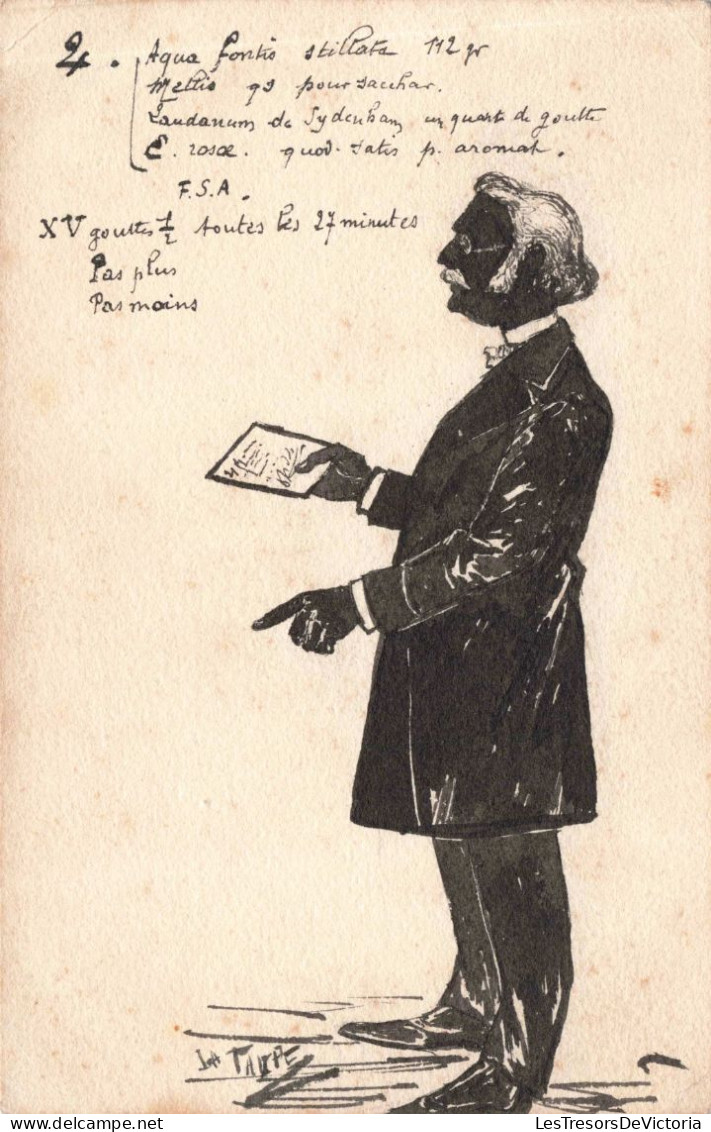 2. Aqua fontis stillata 112 gr
Mellis qs pour sacchar.
Laudanum de Sydenham un quart de goutte
E. rosæ. quod. satis p. aromat.
F.S.A.
XV gouttes 1/2 toutes les 27 minutes
Pas plus
Pas moins
TAUPE
LesTresorsDeVictoria